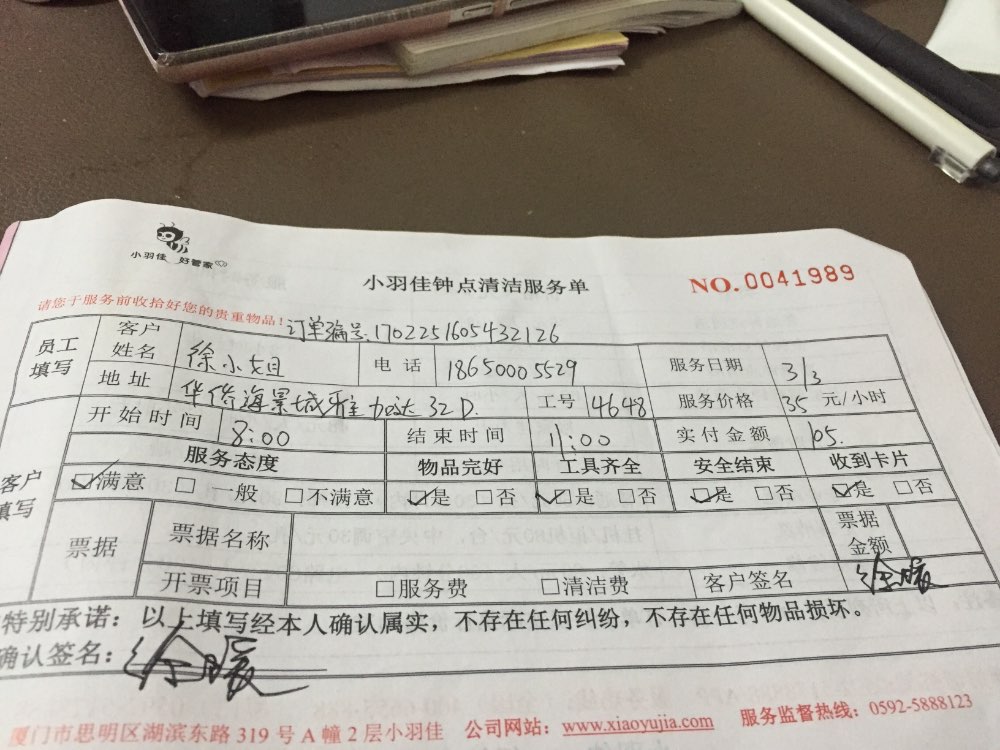 小羽佳 好管家
小羽佳钟点清洁服务单
NO.0041989
请您于服务前收拾好您的贵重物品!
订单编号:1702251605432126
员工填写 客户姓名 徐小姐 电话 18650005529 服务日期 3/3
地址 华侨海景城雅加达32D. 工号 4648 服务价格 35 元/小时
客户填写 开始时间 8:00 结束时间 11:00 实付金额 105.
服务态度 物品完好 工具齐全 安全结束 收到卡片
☑满意 □一般 □不满意 ☑是 □否 ☑是 □否 ☑是 □否 ☑是 □否
票据 票据名称 票据金额
开票项目 □服务费 □清洁费 客户签名 徐暖
特别承诺:以上填写经本人确认属实,不存在任何纠纷,不存在任何物品损坏。
确认签名:徐暖
厦门市思明区湖滨东路 319 号 A 幢 2 层小羽佳 公司网站:www.xiaoyujia.com 服务监督热线:0592-5888123